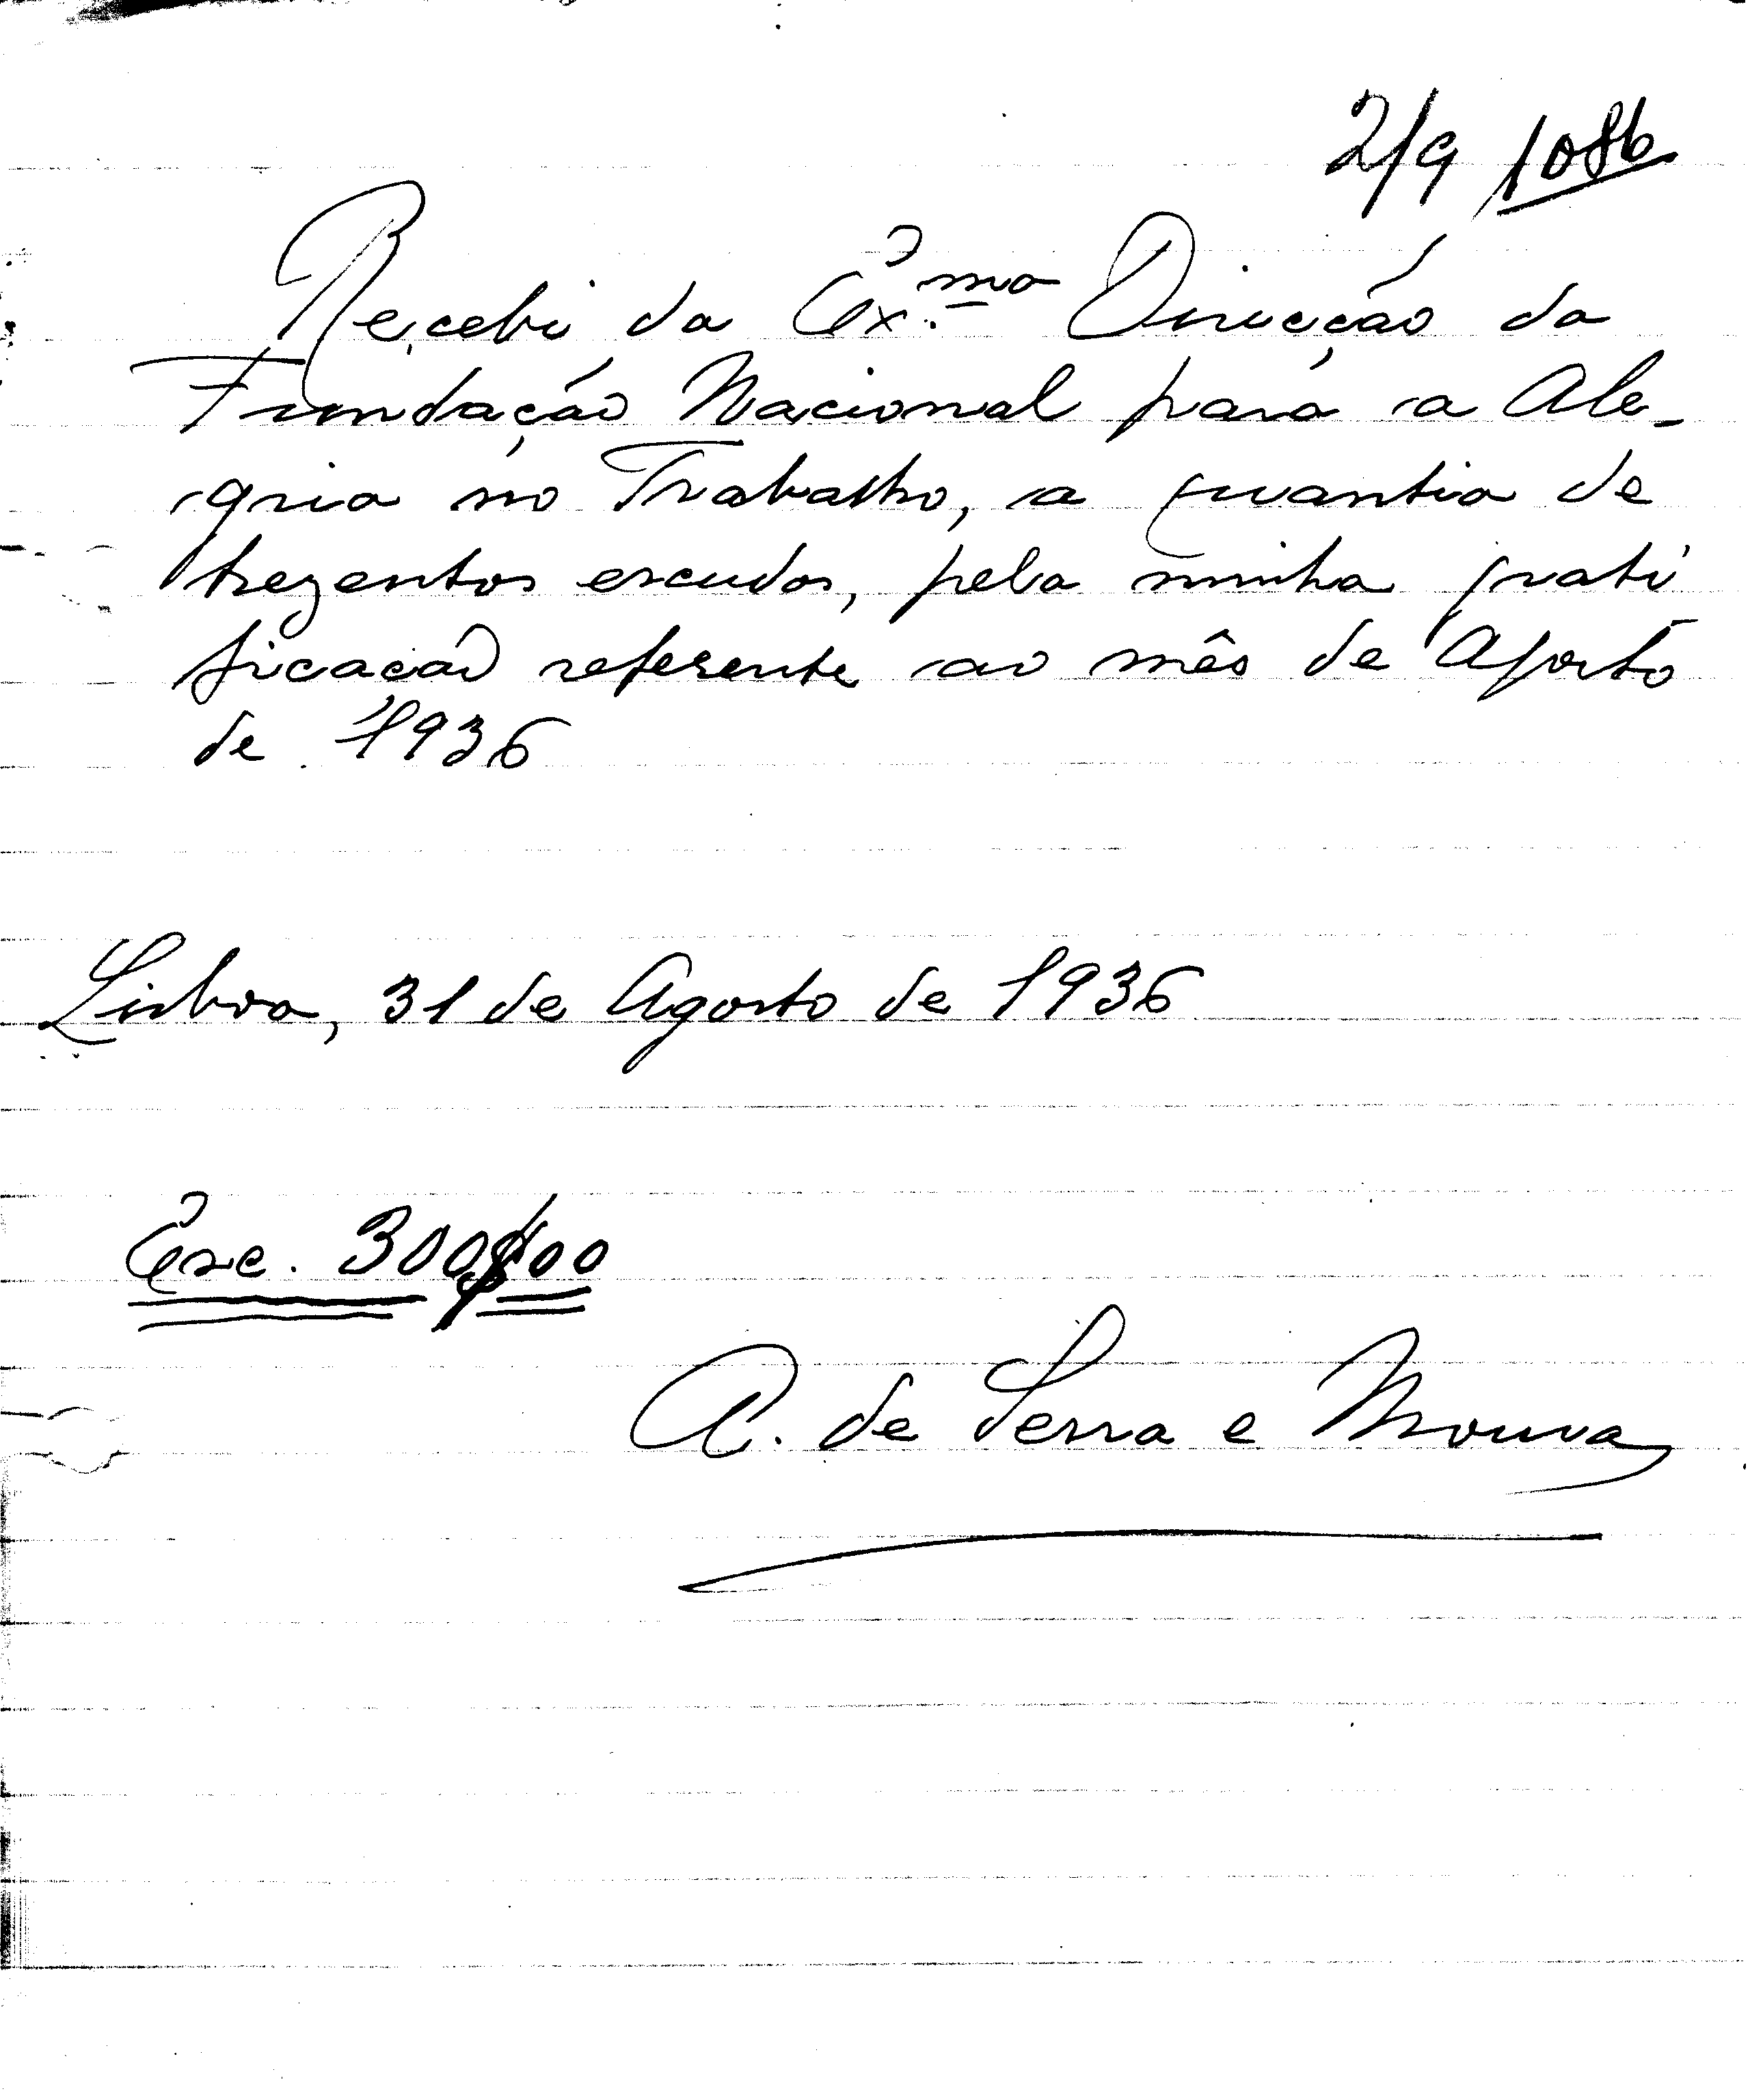 2/9 1086
Recebi da Ex.ma Direcção da
Fundação Nacional para a Ale-
gria no Trabalho, a quantia de
trezentos escudos, pela minha grati
ficação referente ao mês de Agosto
de 1936
Lisboa, 31 de Agosto de 1936
Esc. 300$00
A. de Serra e Moura